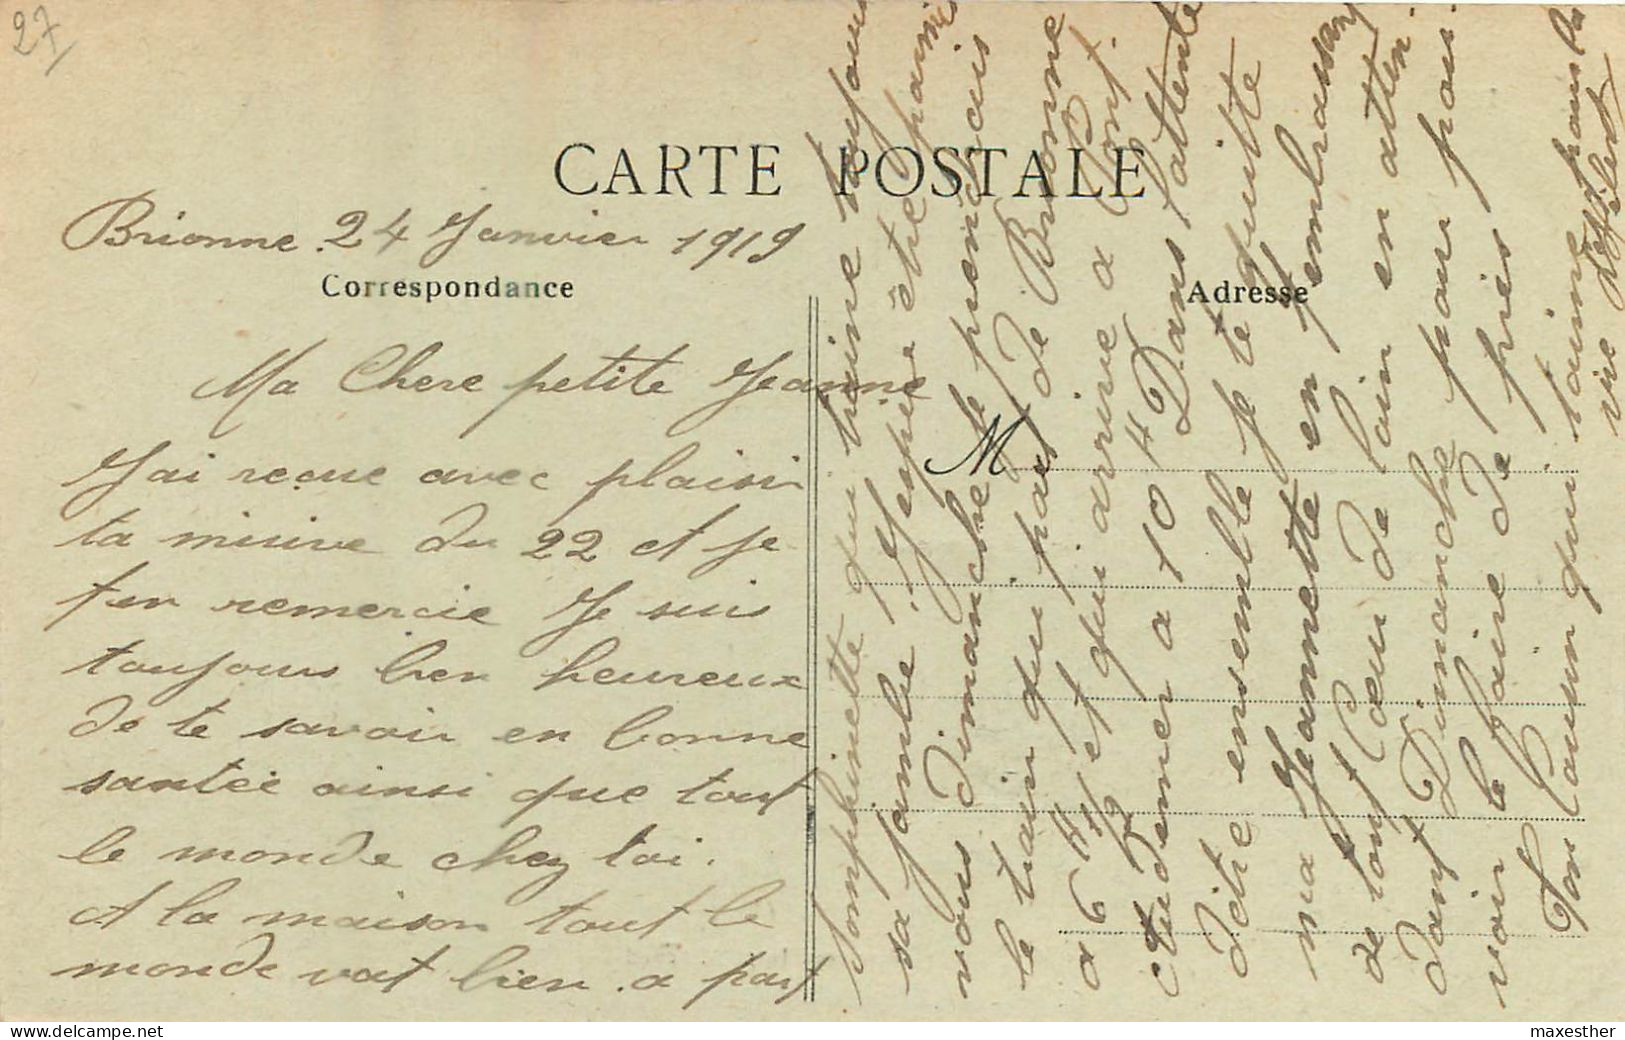 27
CARTE POSTALE
Brionne 24 Janvier 1919
Correspondance
Adresse
Ma Chere petite Jeanne
J'ai reçue avec plaisir
ta missive du 22 et je
t'en remercie Je suis
toujours bien heureux
de te savoir en bonne
santée ainsi que tout
le monde chez toi.
et la maison tout le
monde vat bien . a part
M
qui traine toujours
sa jambe . J'espère être parmi
vous dimanche je prendrais
le train qui part de Brionne
a 6 H et qui arrive a Pont.
Audemer a 10 H Dans l'attente
d'être ensemble je te quitte
ma Jeannette en t'embrassant
de tout Cœur de loin en atten
dant Dimanche pour pou
voir le faire de près
Ton Cousin qui t'aime pour la
vie
maxesther
www.delcampe.net